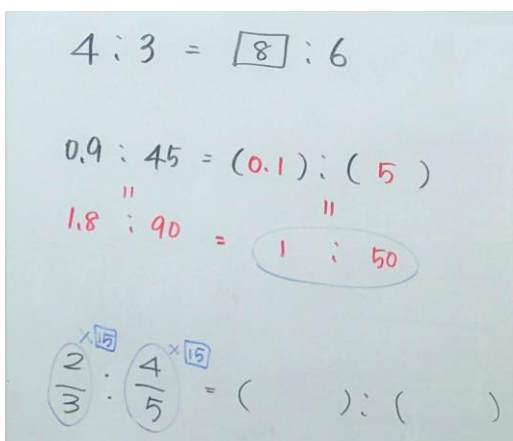 4 : 3 = 8 : 6
0.9 : 45 = (0.1) : ( 5 )
॥ ॥
1.8 : 90 = 1 : 50
×15 ×15
2/3 : 4/5 = ( ) : ( )